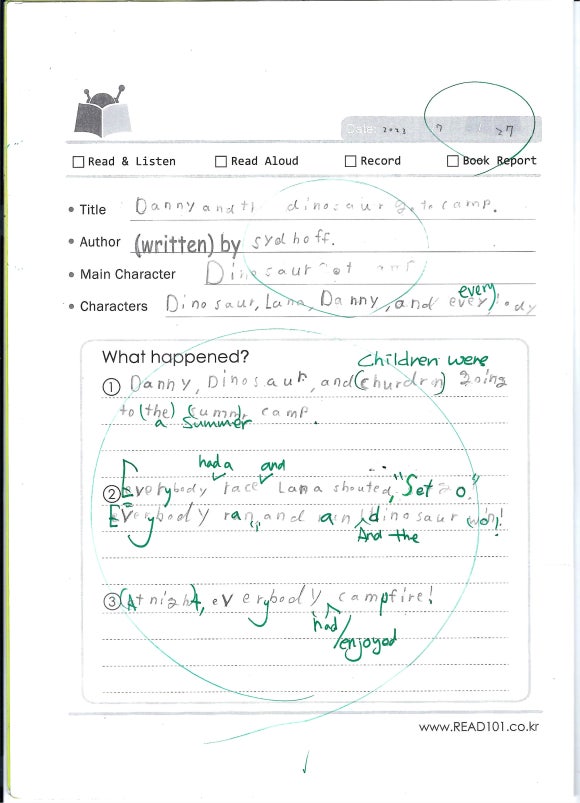 Date: 2023 7 27
Read & Listen Read Aloud Record Book Report
Title Danny and dinosaur go to camp.
Author (written) by syd hoff.
Main Character Dinosaur
every
Characters Dinosaur, Lana, Danny, and every body
What happened?
Children were
① Danny, Dinosaur, and (churdren) going
to (the) (summ) camp.
a summer
had a and
② Everybody race Lana shouted, "Set go."
Everybody ran, and dinosaur won!
And the
③ (At night), everybody campfire!
had/enjoyed
www.READ101.co.kr